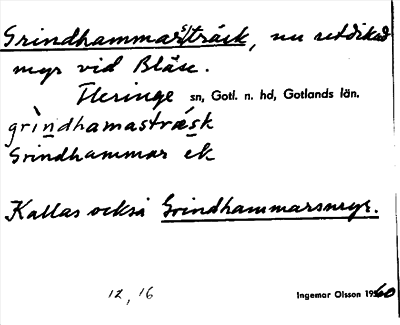 Grindhammarsträsk, nu utdikad
myr vid Bläse.
Fleringe sn, Gotl. n. hd, Gotlands län.
grìndhamastrǽsk
Grindhammar ek
Kallas också Grindhammarsmyr.
12, 16
Ingemar Olsson 1960